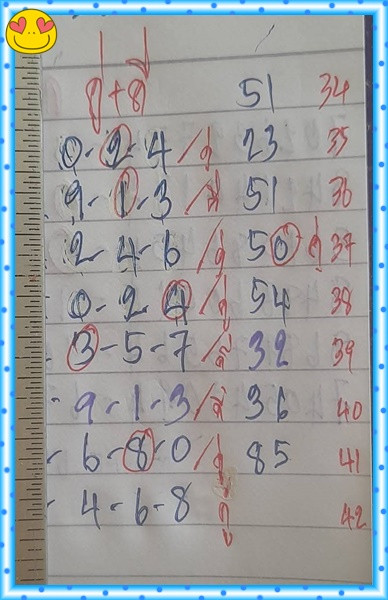 คู่+คี่ 51 34
0-2-4/คู่ 23 35
9-1-3/คี่ 51 36
2-4-6/คู่ 50-คู่ 37
0-2-4/คู่ 54 38
3-5-7/คี่ 32 39
9-1-3/คี่ 36 40
6-8-0/คู่ 85 41
4-6-8 คู่ 42